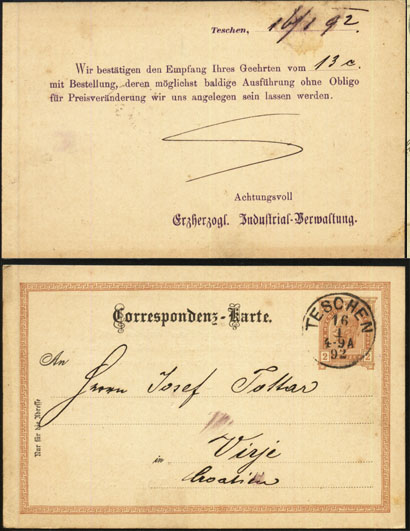 Teschen, 16/1 92.
Wir bestätigen den Empfang Ihres Geehrten vom 13 c.
mit Bestellung, deren möglichst baldige Ausführung ohne Obligo
für Preisveränderung wir uns angelegen sein lassen werden.
Achtungsvoll
Erzherzogl. Industrial-Verwaltung.
Correspondenz-Karte.
TESCHEN
16
1
4-9A
92
2 2
An
Herrn Josef Tottar
Nur für die Adresse
in Virje
Croatien